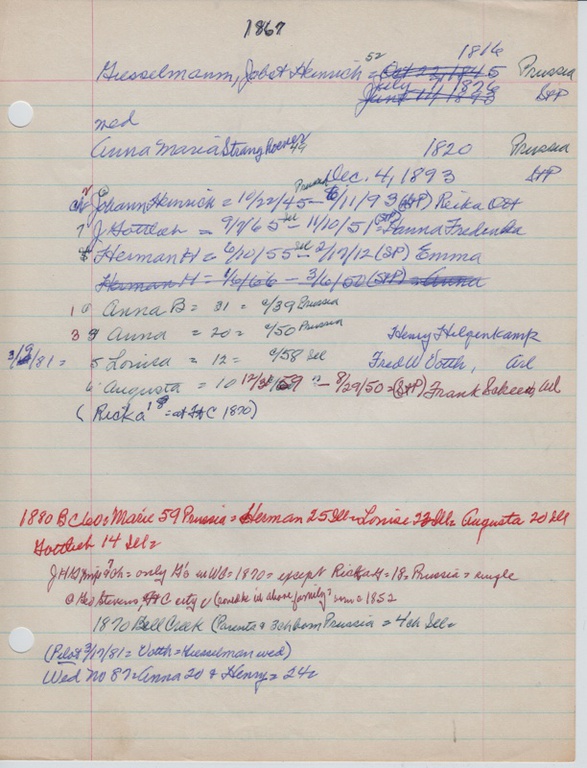 1867
1816
Giesselmann, Jobst Heinrich 52 = Oct 22, 1845 Prussia
July 1826
June 11, 1893 StP
wed
Anna Maria Stranghoener 49 1820 Prussia
Dec. 4, 1893 StP
Prussia
ch 2 Johann Heinrich = 10/22/45 - 6/11/93 (StP) Reika Ost
7 J Gottlieb = 9/2/65 Ill - 11/10/51 (StP) Hanna Fredericka
Herman H = 6/10/55 Ill - 2/17/12 (StP) Emma
Herman H = 4/6/66 - 3/6/50 (StP) = Anna
1 Anna B = 31 = c/39 Prussia
3 Anna = 20 = c/50 Prussia Henry Helpenkamp
3/19/81 = 5 Louisa = 12 = c/58 Ill Fred W Voth, Arl
6 Augusta = 10 12/3/59 " - 8/29/50 = (StP) Frank Arl
( Ricka 18 = at F&C 1870)
1880 B C 60 = Marie 59 Prussia = Herman 25 Ill = Louise 22 Ill = Augusta 20 Ill
Gottlieb 14 Ill =
JHG ch = only G's in WC = 1870 = except Ricka G = 18 = Prussia = single
@ Geo Stevens, city (possible in above family? 1852
1870 Bell Creek (Parents & 3 ch born Prussia = 4 ch Ill =
(Pilot 3/17/81 = Voth = Giesselman wed)
Wed No 87 = Anna 20 & Henry = 24 =